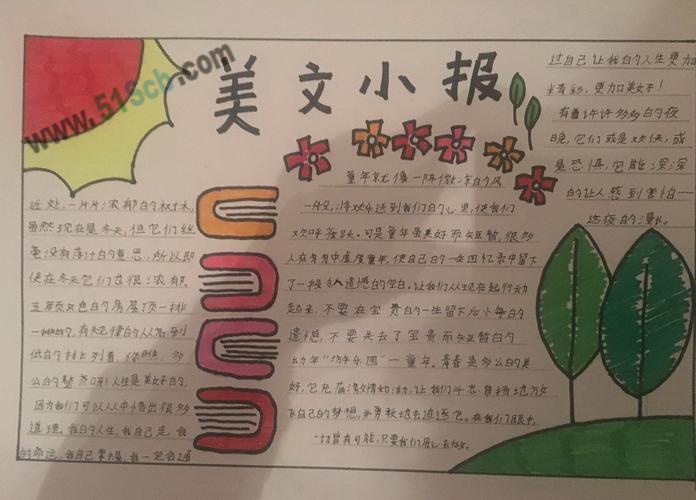 www.51Scb.com
美文小报
近处,一片片浓郁的树木,
虽然现在是冬天,但它们丝
毫没有落叶的意思,所以即
便在冬天它们也很浓郁。
五颜六色的房屋顶一排
一排的,有规律的从高到
低的排列着,
公的整齐啊!人生是美好的,
因为我们可以从中悟出很多
道理。我的人生,我自己走,我
的命运,我自己掌握,我一定会通
童年就像一阵微凉的风
一般,将欢乐送到我们的心里,使我们
欢呼雀跃。可是童年虽美好而短暂,很多
人在有
了一段令人遗憾的空白。让我们从现在起行动
起来,不要在宝贵的一生留下后悔的
遗憾,不要失去了宝贵而短暂的
少年“游乐园”一童年。青春是多么的美
好,它充满激情和活力,让我们斗志昂扬地放
飞自己的梦想,
一切皆有可能,只要我们用心去做。
过自己让我的人生更加
精彩,更加美好!
有着许许多多的夜
晚,它们或是欢快,或
是恐惧,它能深深
的让人感到害怕一
这夜的漫长。